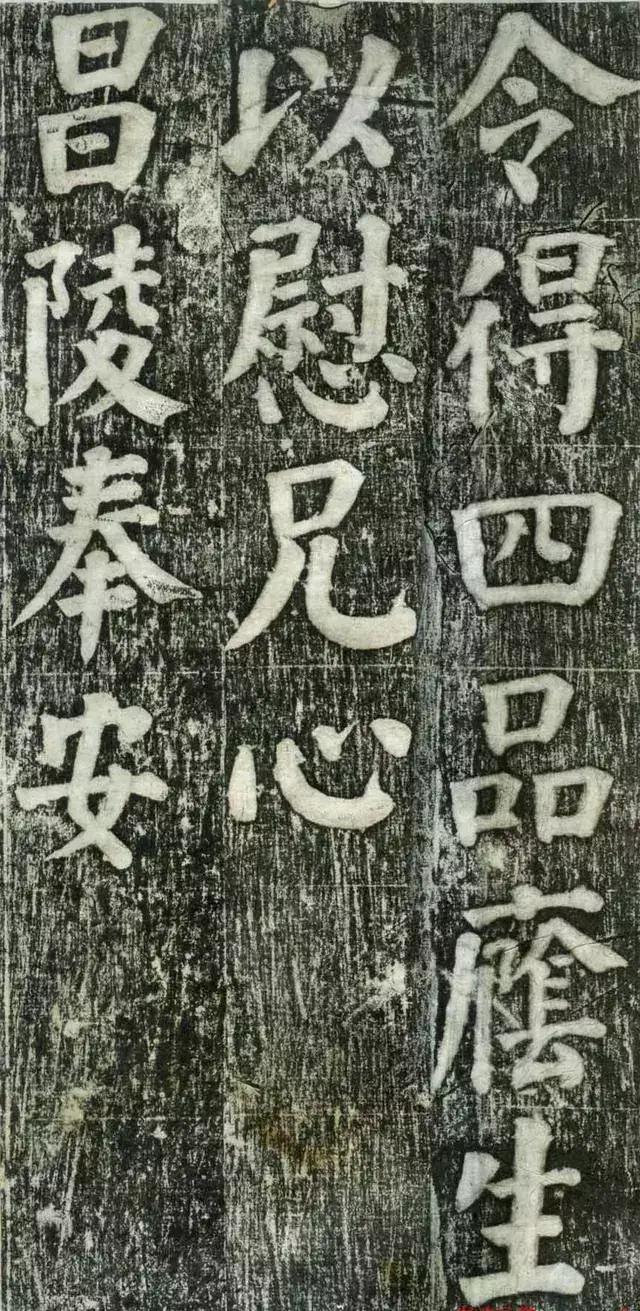 令得四品廕生
以慰兄心
昌陵奉安